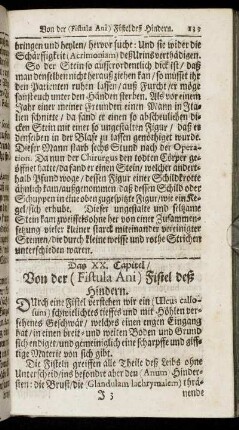 Von der (Fistula Ani) Fistel deß Hindern. 133
bringen und heylen/ hervor sucht: Und sie wider die
Schärffigkeit (Acrimoniam) deß Urins verthädigen.
So der Stein so ausserordentlich dick ist/ daß
man denselben nicht herauß ziehen kan/ so müsset ihr
den Patienten ruhen lassen/ auß Furcht/ er möge
sonst euch unter den Händen sterben. Als vor einem
Jahr einer meiner Freunden einen Mann in Ita-
lien schnitte/ da fand er einen so abscheulichen di-
cken Stein und einer so ungestalten Figur/ daß er
denselben in der Blase zu lassen genöthiget wurde.
Dieser Mann starb sechs Stund nach der Opera-
tion. Da nun der Chirurgus den todten Cörper ge-
öffnet hatte/ da fand er einen Stein/ welcher andert-
halb Pfund woge/ dessen Figur einer Schildkrote
ähnlich kam/ außgenommen daß dessen Schild oder
Schuppen in eine oben zugespitzte Figur/ wie ein Ke-
gel/ sich erhube. Dieser ungestalte und seltzame
Stein kam zweiffelsohne her von einer Zusammen-
setzung vieler kleiner starck miteinander vereinigter
Steinen/ die durch kleine weisse und rothe Strichen
unterschieden waren.
Das XX. Capitel/
Von der (Fistula Ani) Fistel deß
Hindern.
DUrch eine Fistel verstehen wir ein (Ulcus callo-
sum) schwielichtes tieffes und mit Höhlen ver-
sehenes Geschwär/ welches einen engen Eingang
hat/ in einen breit- und weiten Boden und Grund
sich endiget/ und gemeiniglich eine scharffe und gif-
tige Materie von sich gibt.
Die Fisteln greiffen alle Theile deß Leibs ohne
Unterscheid/ ins besondre aber den (Anum) Hinder-
sten: die Brust/ die (Glandulam lachrymalem) thrä-
J 3 nende